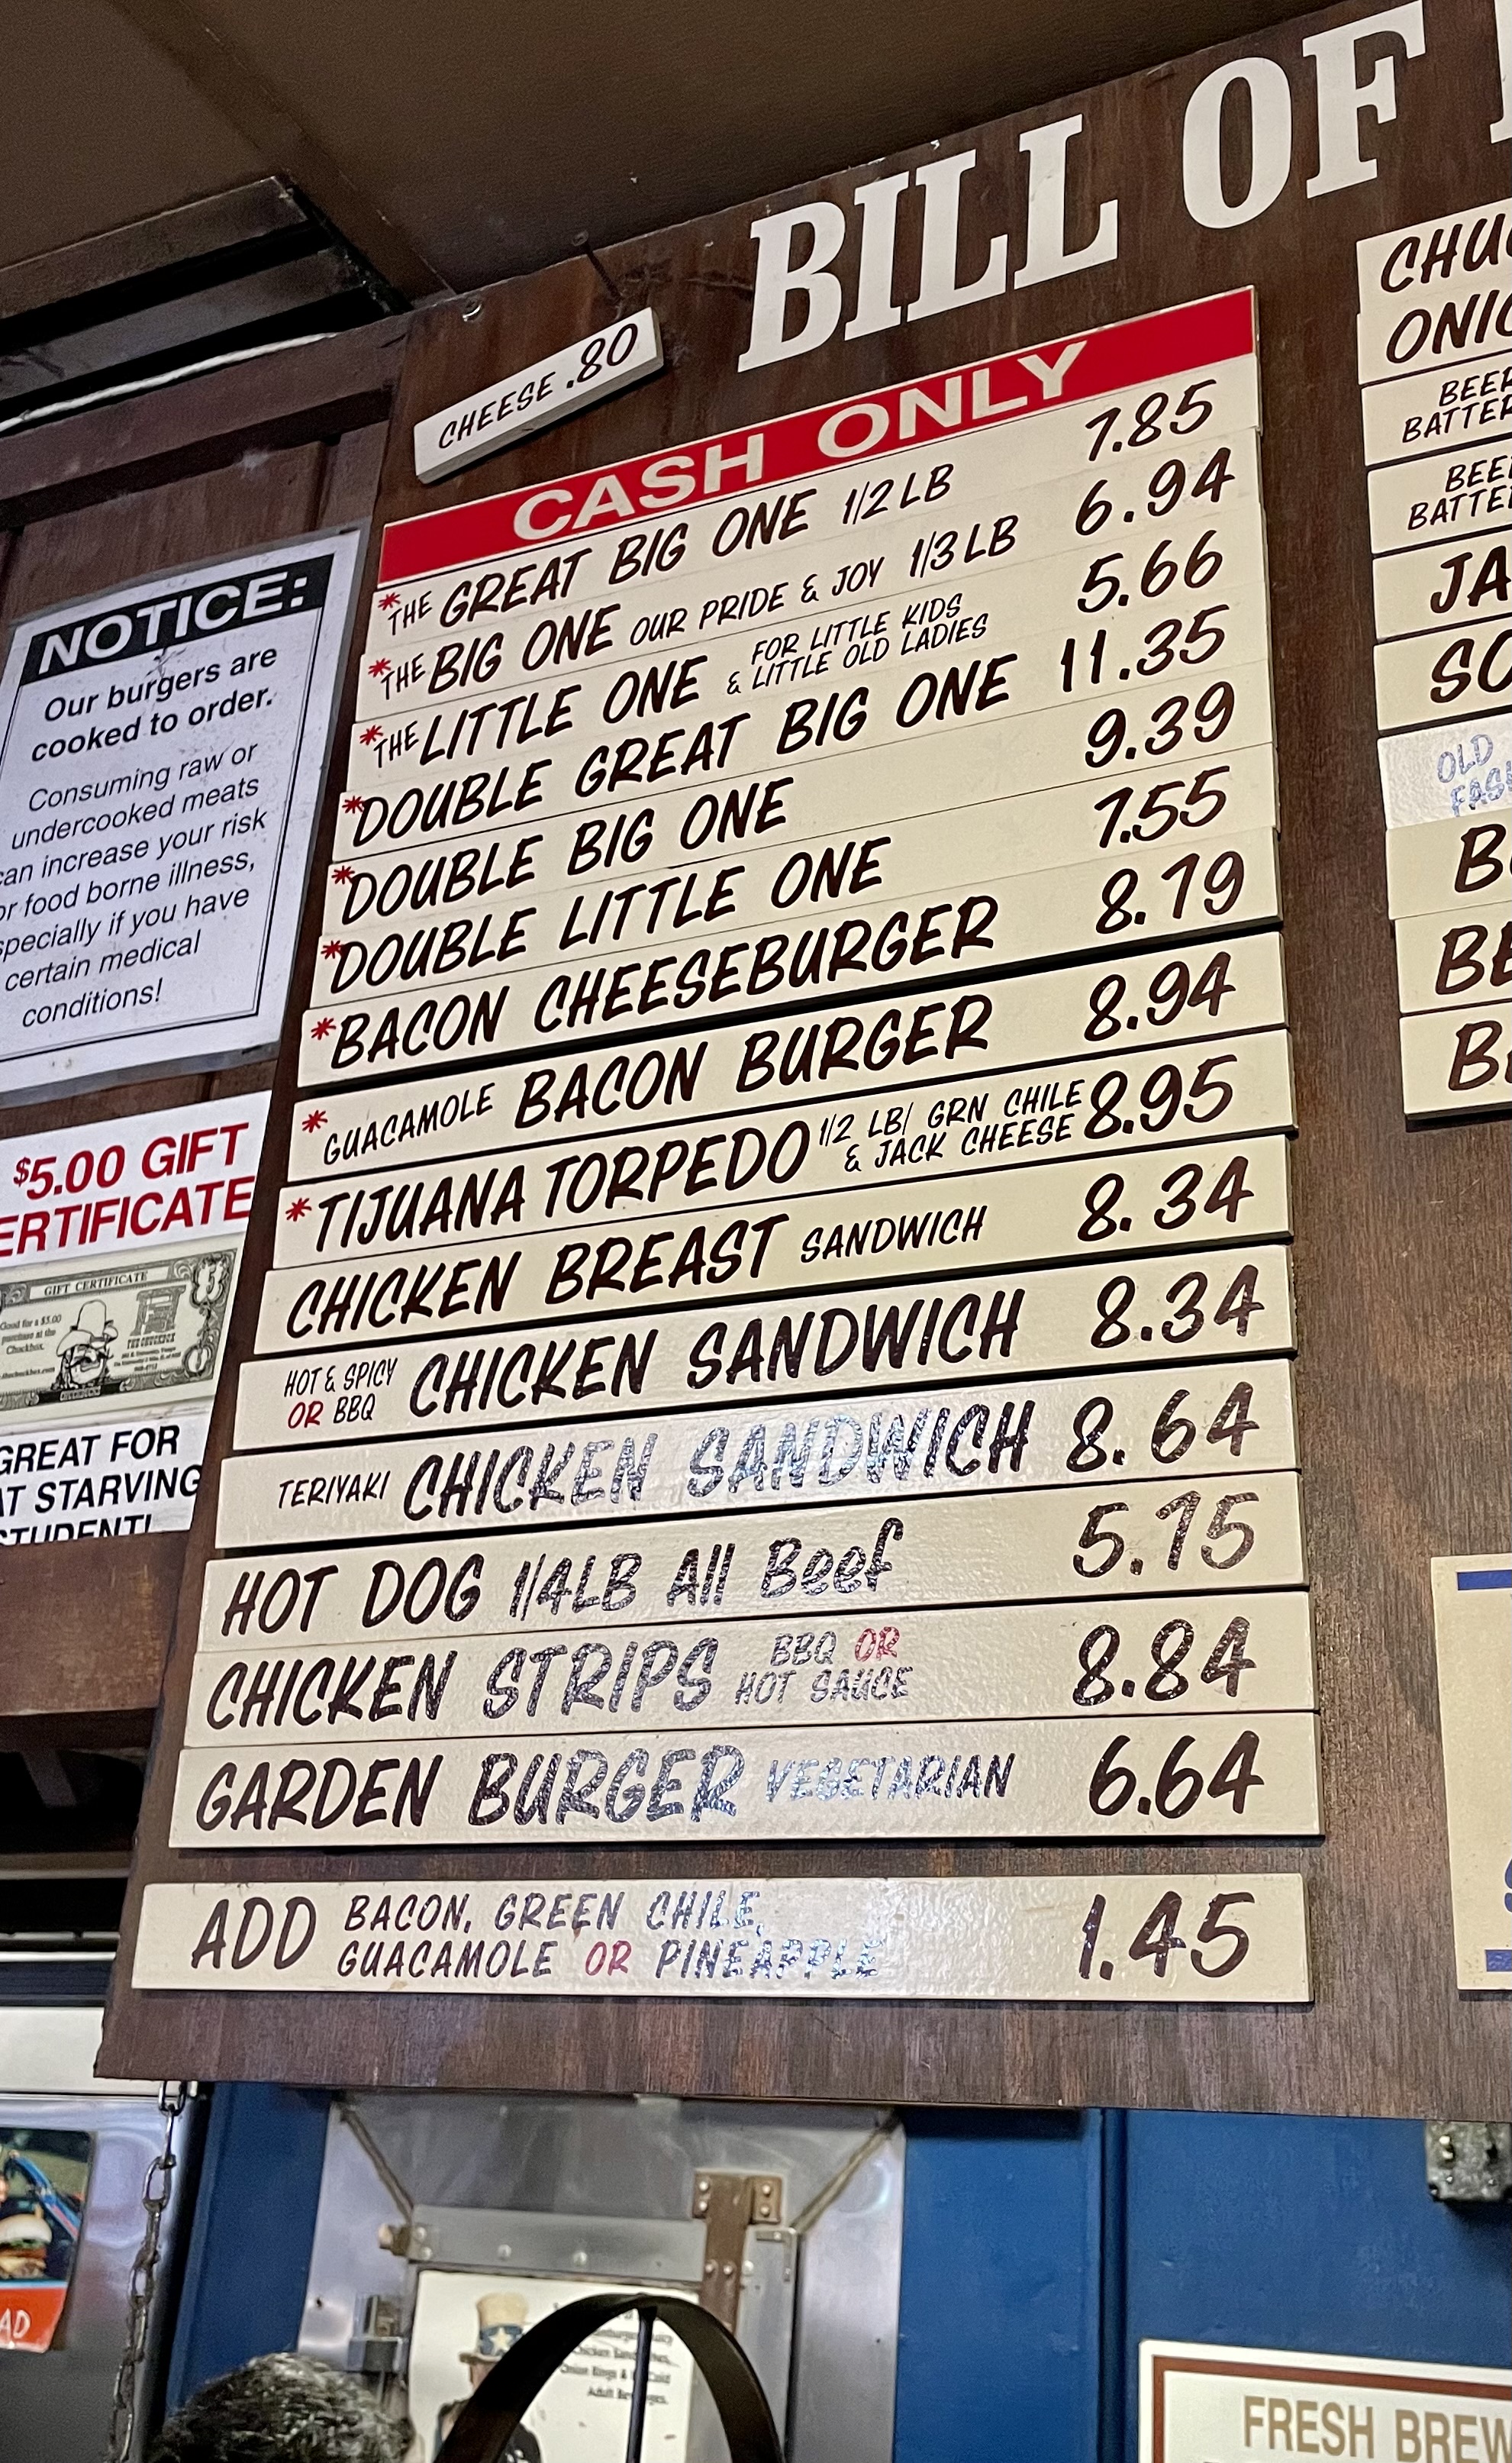 BILL OF
CHEESE .80
CASH ONLY
*THE GREAT BIG ONE 1/2 LB 7.85
*THE BIG ONE OUR PRIDE & JOY 1/3 LB 6.94
*THE LITTLE ONE FOR LITTLE KIDS & LITTLE OLD LADIES 5.66
*DOUBLE GREAT BIG ONE 11.35
*DOUBLE BIG ONE 9.39
*DOUBLE LITTLE ONE 7.55
*BACON CHEESEBURGER 8.79
*GUACAMOLE BACON BURGER 8.94
*TIJUANA TORPEDO 1/2 LB/ GRN CHILE & JACK CHEESE 8.95
CHICKEN BREAST SANDWICH 8.34
HOT & SPICY OR BBQ CHICKEN SANDWICH 8.34
TERIYAKI CHICKEN SANDWICH 8.64
HOT DOG 1/4LB All Beef 5.75
CHICKEN STRIPS BBQ OR HOT SAUCE 8.84
GARDEN BURGER VEGETARIAN 6.64
ADD BACON, GREEN CHILE, GUACAMOLE OR PINEAPPLE 1.45
NOTICE:
Our burgers are
cooked to order.
Consuming raw or
undercooked meats
can increase your risk
for food borne illness,
specially if you have
certain medical
conditions!
$5.00 GIFT
ERTIFICATE
GIFT CERTIFICATE
Good for a $5.00
purchase at the
Chuckbox.
GREAT FOR
AT STARVING
STUDENT!
CHU
ONIO
BEER
BATTER
BEE
BATTE
JA
SO
OLD
FASH
B
BE
B
AD
FRESH BREW